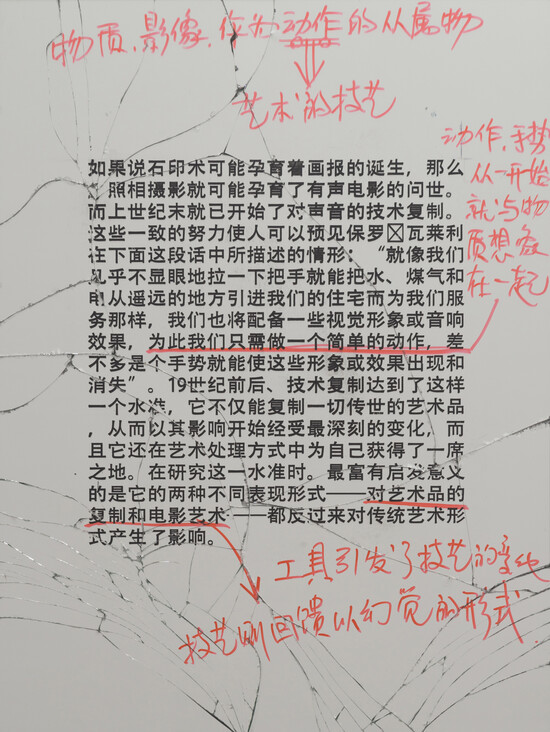 物质、影像、作为动作的从属物
艺术的技艺
动作、手势
从一开始
就与物
质想象
在一起
如果说石印术可能孕育着画报的诞生，那么
，照相摄影就可能孕育了有声电影的问世。
而上世纪末就已开始了对声音的技术复制。
这些一致的努力使人可以预见保罗〼瓦莱利
在下面这段话中所描述的情形：“就像我们
几乎不显眼地拉一下把手就能把水、煤气和
电从遥远的地方引进我们的住宅而为我们服
务那样，我们也将配备一些视觉形象或音响
效果，为此我们只需做一个简单的动作，差
不多是个手势就能使这些形象或效果出现和
消失”。19世纪前后、技术复制达到了这样
一个水准，它不仅能复制一切传世的艺术品
，从而以其影响开始经受最深刻的变化，而
且它还在艺术处理方式中为自己获得了一席
之地。在研究这一水准时。最富有启发意义
的是它的两种不同表现形式——对艺术品的
复制和电影艺术——都反过来对传统艺术形
式产生了影响。
工具引发了技艺的变化
技艺则回馈以幻觉的形式